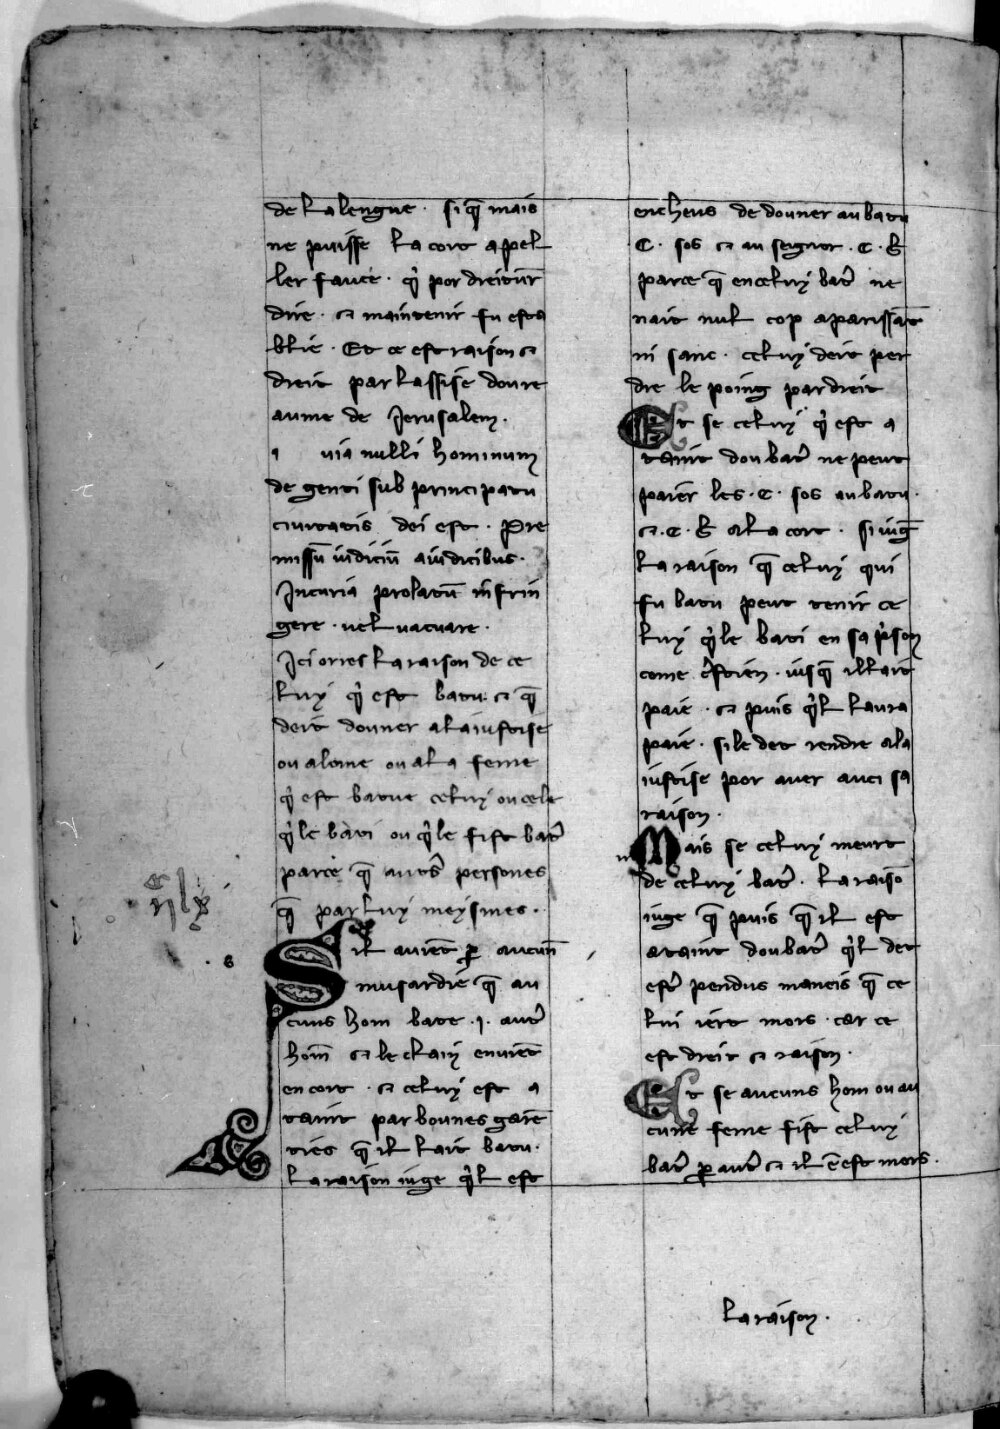 de la lengue · si q̄ mais
ne puisse la cort apel
ler fauce · q̇ por dreitur̄
dire · ⁊ maintenir fu esta
blie · Et ce est raison ⁊
dreit par lassise dou re
aume de Jerusalem ·
uia nulli hominum
de genti sub principatu
ciuitatis dei est · Pre
missū iudiciū a iudicibus ·
Incuria prolatū infrin
gere · uel uacuare ·
Ici orres la raison de ce
luy q̇ est batu · ⁊ q̄
deit douner a la iustise
ou alome ou a la feme
q̇ est batue celuy ou cele
q̇ le bati ou q̇ le fist bat̄
parce q̄ aut̄s persones
q̄ par luy meysmes ·
Sil auiēt ꝑ aucun̄
musardie q̄ au
cuns hom bate · j · aut̄
hom̄ ⁊ le claim enuiēt
en cort · ⁊ celuy est a
taint par bounes garē
ties q̄ il lait batu ·
La raison iuge q̇l est
encheus de douner au batu
· C · sos ⁊ au seignor · C · ⁊
parce q̄ en celuy bat̄ ne
nait nul cop aparissāt
ni sanc · celuy deit per
dre le poing par dreit
Et se celuy q̇ est a
taint dou bat̄ ne peut
paier les · C · sos au batu ·
⁊ · C · a la cort · si iuḡ
la raison q̄ celuy qui
fu batu peut tenir ce
luy q̇ le bati en sa ṗson
come c̄stien · iusq̄ il lait
paie · ⁊ puis q̇l laura
paie · si le det rendre a la
iustise por auer auci sa
raison ·
Mais se celuy meurt
de celuy bat̄ · la raisō
iuge q̄ puis q̄ il est
ataint dou bat̄ q̇l det
est̄ pendus maneis q̄ ce
lui iert mors · car ce
est dreit ⁊ raison ·
Et se aucuns hom ou au
cune feme fist celuy
bat̄ ꝑ aut̄ ⁊ il ē est mors ·
La raison ·